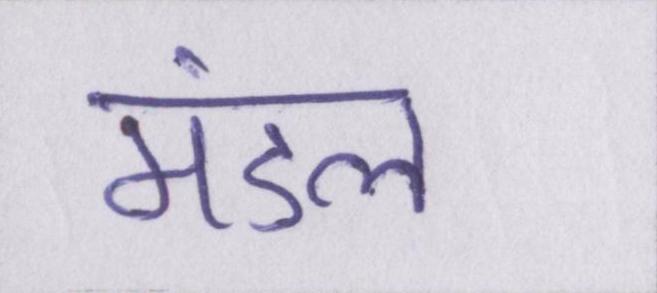 मंडल